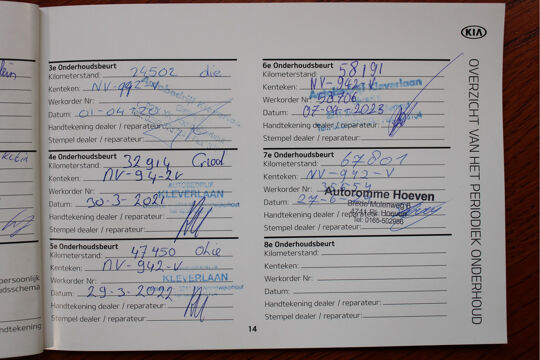 KIA
OVERZICHT VAN HET PERIODIEK ONDERHOUD
3e Onderhoudsbeurt
Kilometerstand: 24502 olie
Kenteken: NV-942-V
Werkorder Nr:
Datum: 01-04-2020
Handtekening dealer / reparateur:
Stempel dealer / reparateur:
4e Onderhoudsbeurt
Kilometerstand: 32914 Groot
Kenteken: NV-942-V
Werkorder Nr: AUTOBEDRIJF
KLEVERLAAN
Datum: 30-3-2021
Handtekening dealer / reparateur:
Stempel dealer / reparateur:
5e Onderhoudsbeurt
Kilometerstand: 47450 Olie
Kenteken: NV-942-V
Werkorder Nr: KLEVERLAAN
Datum: 29-3-2022
Handtekening dealer / reparateur:
Stempel dealer / reparateur:
6e Onderhoudsbeurt
Kilometerstand: 58191
Kenteken: NV-942-V
Kleverlaan
Werkorder Nr: 58706
Datum: 07-04-2023
Handtekening dealer / reparateur:
Stempel dealer / reparateur:
7e Onderhoudsbeurt
Kilometerstand: 67801
Kenteken: NV-942-V
Werkorder Nr:
Autoromme Hoeven
Datum: 27-6-
Handtekening dealer / reparateur: 4741 Hoeven
Stempel dealer / reparateur: Tel: 0165-502986
8e Onderhoudsbeurt
Kilometerstand:
Kenteken:
Werkorder Nr:
Datum:
Handtekening dealer / reparateur:
Stempel dealer / reparateur:
14